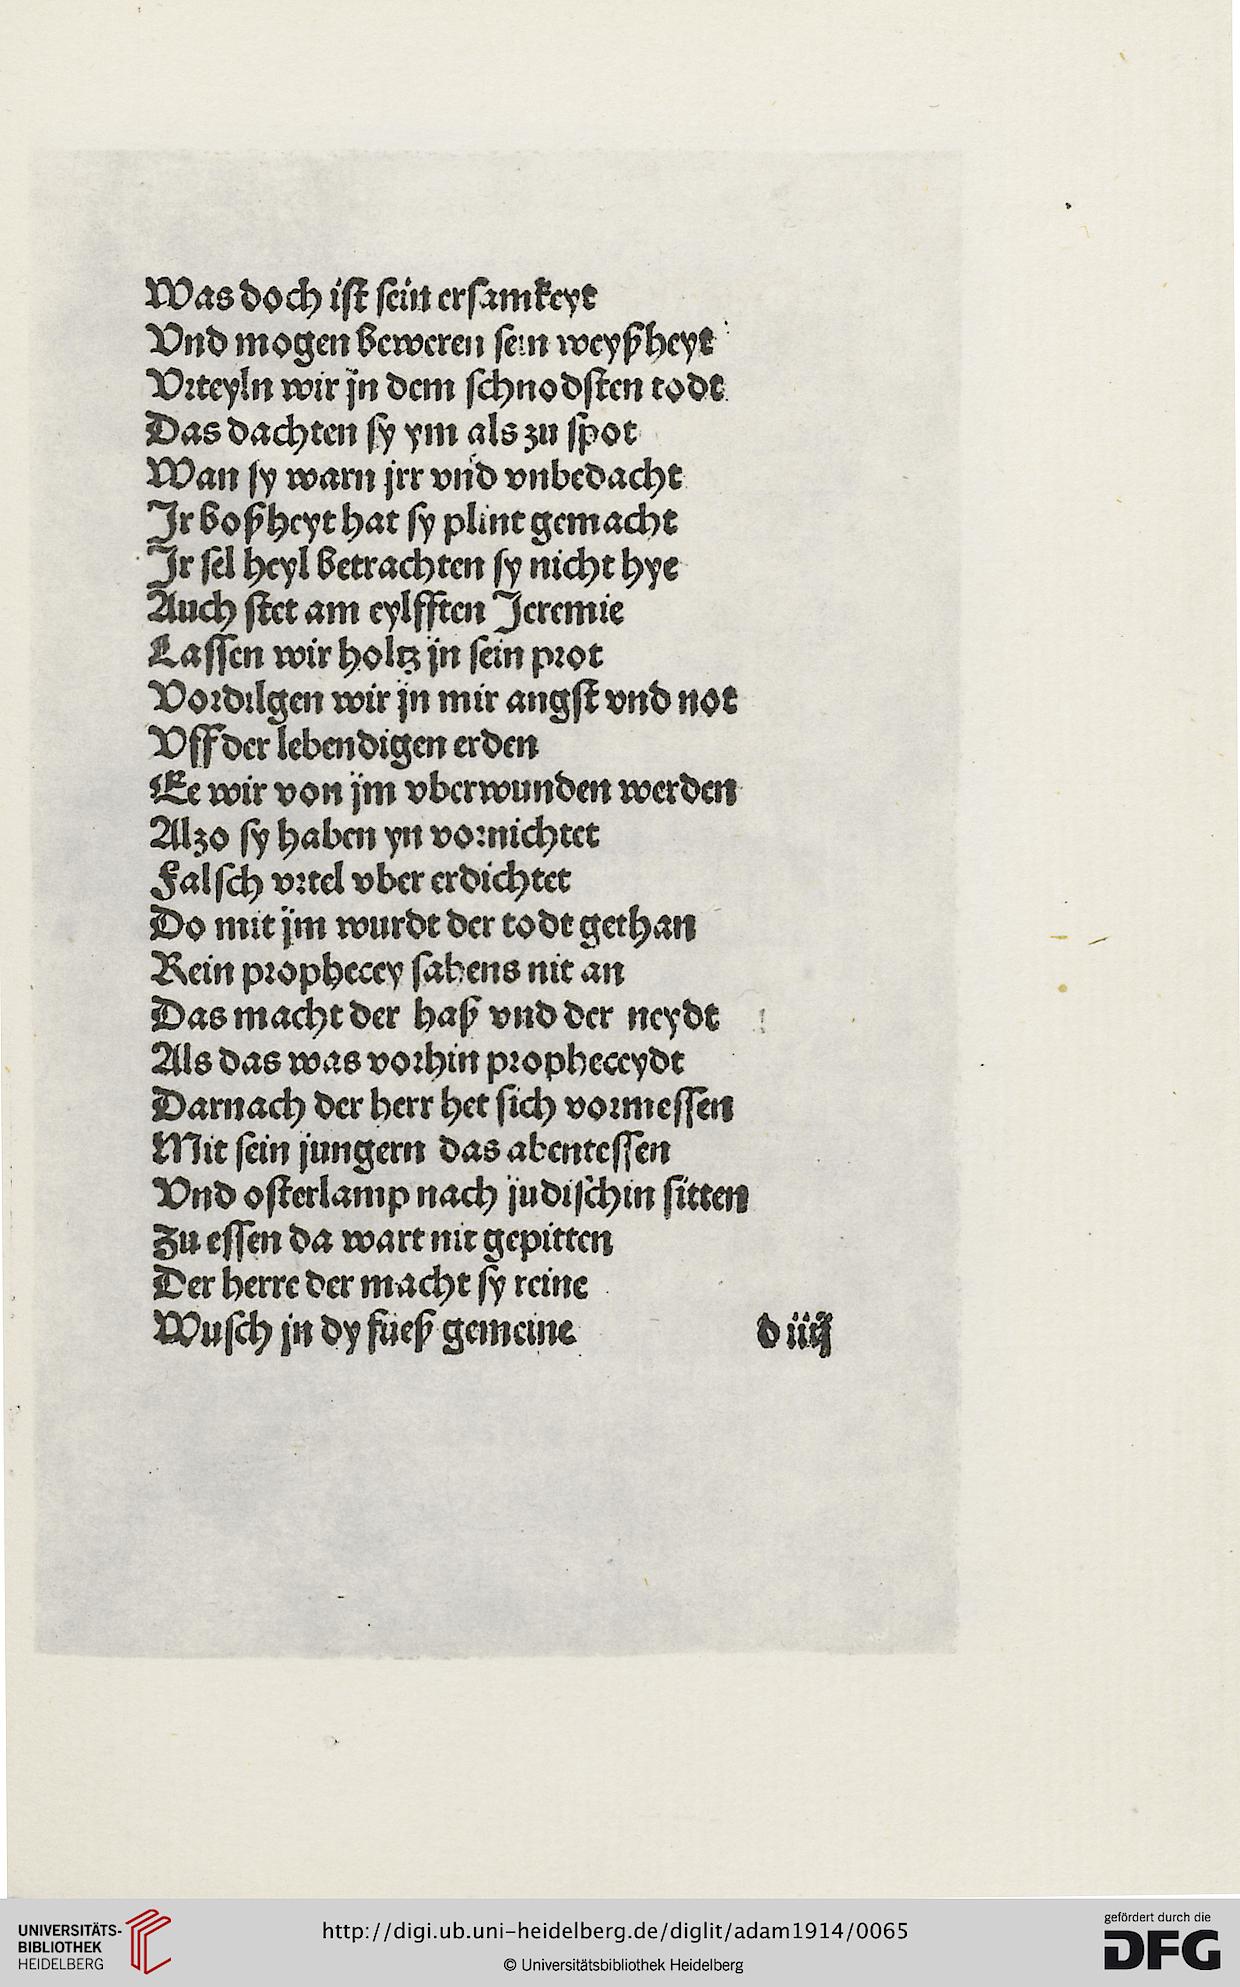 Was doch ist sein ersamkeyt
Vnd mogen beweren sein weyßheyt
Vrteyln wir jn dem schnodsten todt
Das dachten sy ym als zu spot
Wan sy warn jrr vnd vnbedacht
Jr boßheyt hat sy plint gemacht
Jr sel heyl betrachten sy nicht hye
Auch stet am eylfften Jeremie
Lassen wir holtz jn sein prot
Vordilgen wir jn mir angst vnd not
Vff der lebendigen erden
Ee wir von jm vberwunden werden
Alzo sy haben yn vornichtet
Falsch vrtel vber erdichtet
Do mit jm wurdt der todt gethan
Kein prophecey sahens nit an
Das macht der haß vnd der neydt
Als das was vorhin propheceydt
Darnach der herr het sich vormessen
Mit sein jungern das abentessen
Vnd osterlamp nach judischin sitten
Zu essen da wart nit gepitten
Der herre der macht sy reine
Wusch jn dy füeß gemeine
d iiij
UNIVERSITÄTS-
BIBLIOTHEK
HEIDELBERG
http://digi.ub.uni-heidelberg.de/diglit/adam1914/0065
© Universitätsbibliothek Heidelberg
gefördert durch die
DFG